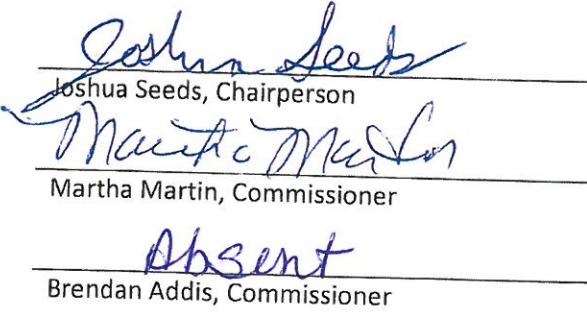 Joshua Seeds
Joshua Seeds, Chairperson
Martha Martin
Martha Martin, Commissioner
Absent
Brendan Addis, Commissioner